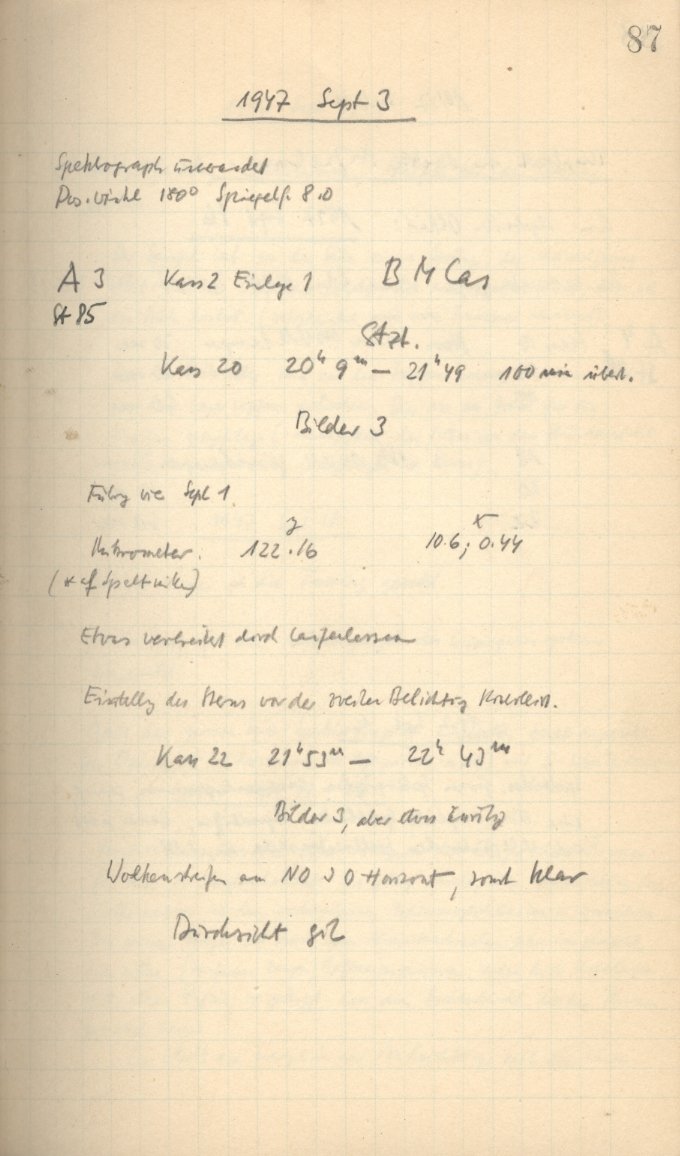 87
1947 Sept 3
Spektrograph
Pos. winkel 180° Spiegelf. 8.0
A 3 Kass 2 Einlage 1 BM Cas
St 85
Stzt.
Kass 20 20h 9m — 21h 49 100 min
Bilder 3
Führg wie Sept 1
y x
Mikrometer. 122.16 10.6; 0.44
(* auf Spaltmitte)
Etwas verbreitert durch Laufenlassen
Einstellg des Sterns vor der zweiten Belichtg kontrolliert.
Kass 22 21h 53m — 22h 43m
Bilder 3, aber etwas unruhig
Wolkenstreifen am NO u O Horizont, sonst klar
Durchsicht gut